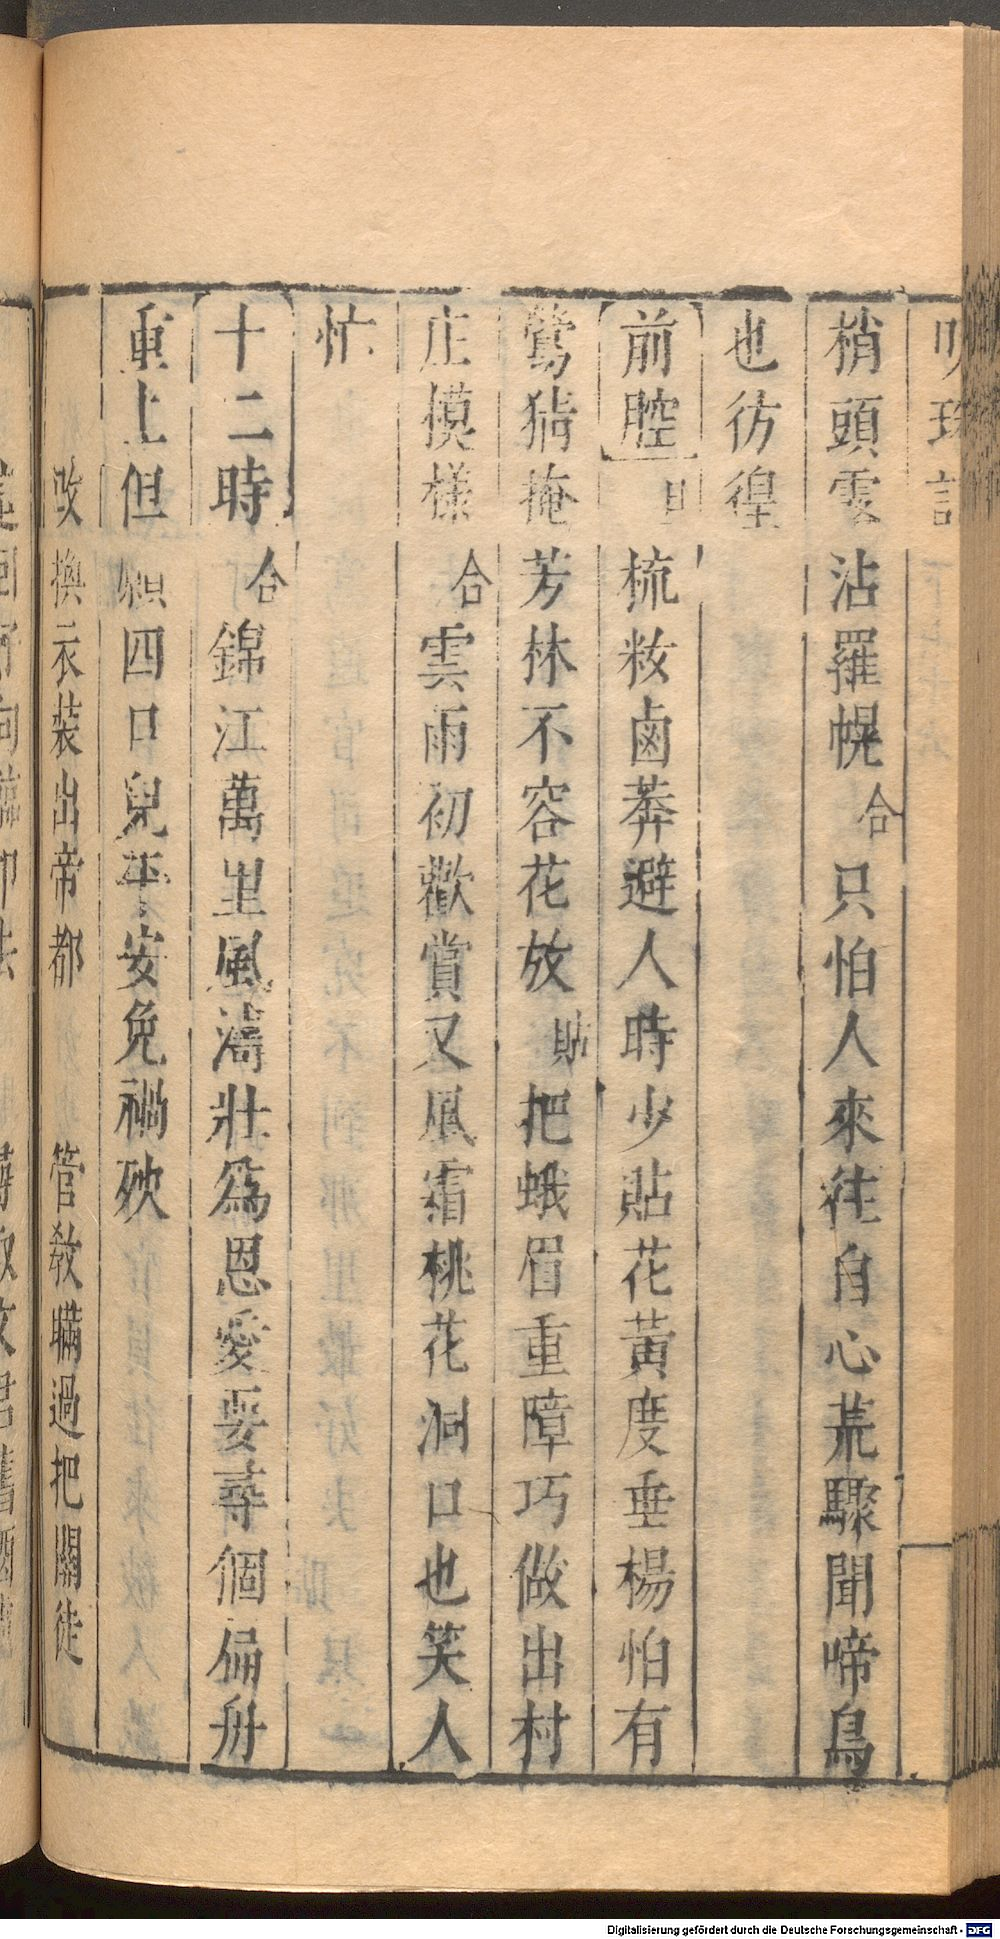 梢頭露沾羅幌合只怕人來往自心荒驟聞啼鳥
也彷徨
前腔旦梳粧鹵莽避人時少貼花黃度垂楊怕有
鶯猜掩芳林不容花放貼把蛾眉重障巧做出村
庄摸樣合雲雨初歡賞又風霜桃花洞口也笑人
忙
十二時合錦江萬里風濤壯爲恩愛要尋個扁舟
重上但願四口兒平安免禍殃
改換衣装出帝都 管教瞞過把關徒
Digitalisierung gefördert durch die Deutsche Forschungsgemeinschaft - DFG